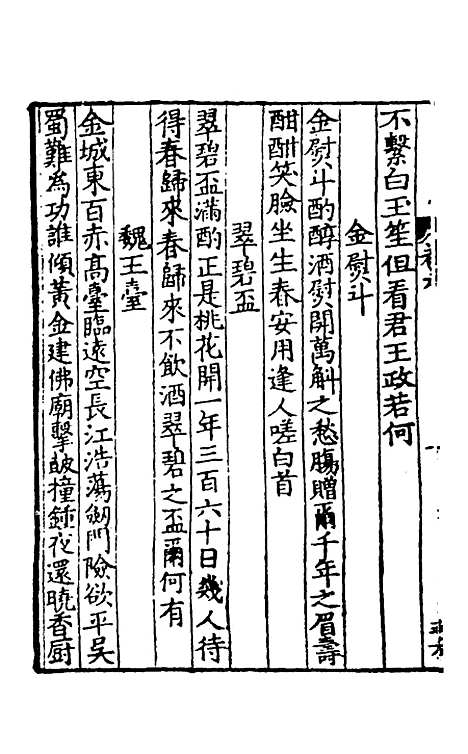 不繫白玉笙但看君王政若何
金熨斗
金熨斗酌醇酒熨開萬斛之愁膓贈爾千年之眉壽
酣酣笑臉坐生春安用逢人嗟白首
翠碧盃
翠碧盃滿酌正是桃花開一年三百六十日幾人待
得春歸來春歸來不飲酒翠碧之盃爾何有
魏王臺
金城東百赤高臺臨遠空長江浩蕩劒門險欲平吳
蜀難為功誰傾黃金建佛廟擊皷撞鍾夜還曉香厨